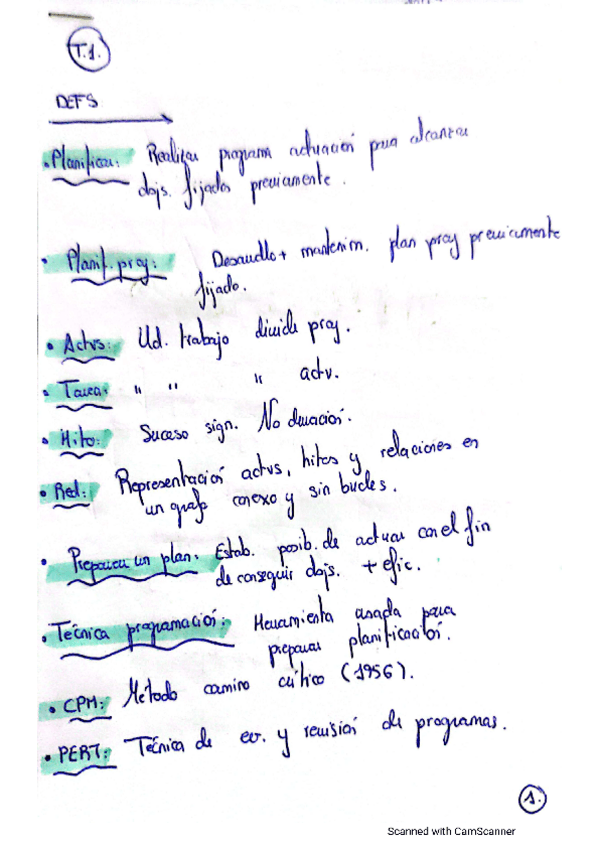 T.1.
DEFS
• Planificar: Realizar programa actuación para alcanzar
objs. fijados previamente.
• Planif. proy: Desarrollo + mantenim. plan proy previamente
fijado.
• Actvs: Ud. trabajo divide proy.
• Tarea: " " " actv.
• Hito: Suceso sign. No duración.
• Red: Representación actvs, hitos y relaciones en
un grafo conexo y sin bucles.
• Preparar un plan: Estab. posib. de actuar con el fin
de conseguir objs. + efic.
• Técnica programación: Herramienta usada para
preparar planificación.
• CPM: Método camino crítico (1956).
• PERT: Técnica de ev. y revisión de programas.
1.
Scanned with CamScanner